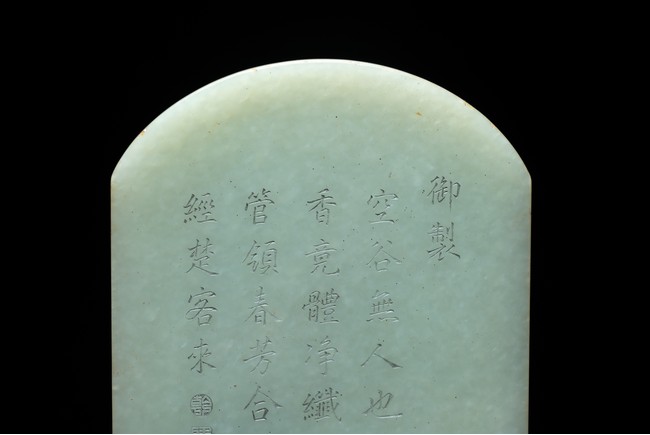 御製
空谷無人也
香竟體凈纖
管領春芳合
經楚客來